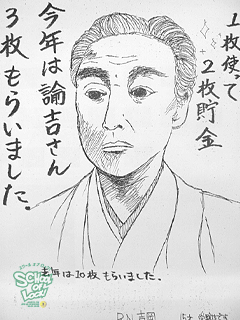 1枚使って
2枚貯金
今年は諭吉さん
3枚もらいました。
去年は10枚もらいました。
SCHOOL OF LOCK!
R.N 吉岡